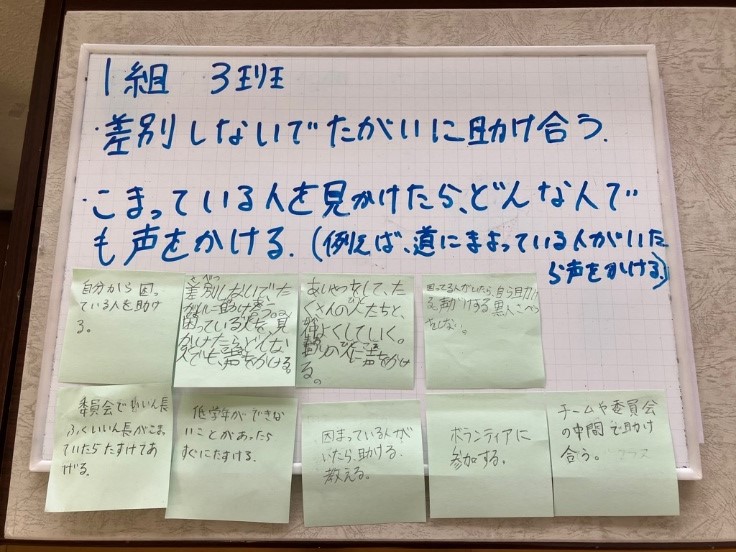 1組 3班
・差別しないでたがいに助け合う.
・こまっている人を見かけたら、どんな人で
も声をかける.(例えば、道にまよっている人がいた
ら声をかける)
自分から困っ
ている人を助け
る。
差別しないでた
がいに助け合う
困っている人を、見
かけたらどんな
人でも、声をかける。
あいさつをして、た
くさんの人たちと、
仲よくしていく。
の人に声をかけ
る。
困ってる人がいたら、自ら助け
る、声かけする
をしない。
委員会で いいん長
ふくいいん長がこまっ
ていたらたすけてあ
げる。
低学年ができな
いことがあったら
すぐにたすける.
困まっている人が
いたら、助ける.
教える。
ボランティアに
参加する。
チームや委員会
の中間で助け
合う。